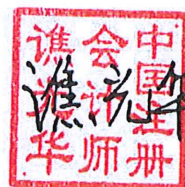 中国注册
会计师
谯华
谯